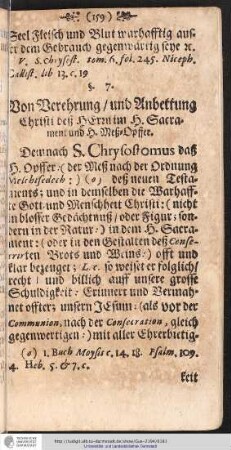 (159)
Seel Fleisch und Blut warhafftig aus-
ser dem Gebrauch gegenwärtig seye ꝛc.
V. S. Chrysost. tom. 6. fol. 245. Niceph.
Callist. lib 13. c. 19
§. 7.
Von Verehrung / und Anbettung
Christi deß HErrn im H. Sacra-
ment und H. Meß-Opffer.
Demnach S. Chrysostomus daß
H. Opffer: (der Meß nach der Ordnung
Melchisedech:) (o) deß neuen Testa-
ments: und in demselben die Warhaff-
te Gott und Menschheit Christi: (nicht
in blosser Gedächtnuß / oder Figur: son-
dern in der Natur:) in dem H. Sacra-
ment: (oder in den Gestalten deß Conse-
crirten Brots und Weins:) offt und
klar bezeuget; L. c. so weiset er folglich /
recht / und billich auff unsere grosse
Schuldigkeit: Erinnert und Vermah-
net offter; unsern JEsum: (als vor der
Communion, nach der Consecration, gleich
gegenwertigen:) mit aller Ehrerbietig-
(o) 1. Buch Moysis c. 14. 18. Psalm. 109.
4. Heb. 5. & 7. c.
keit